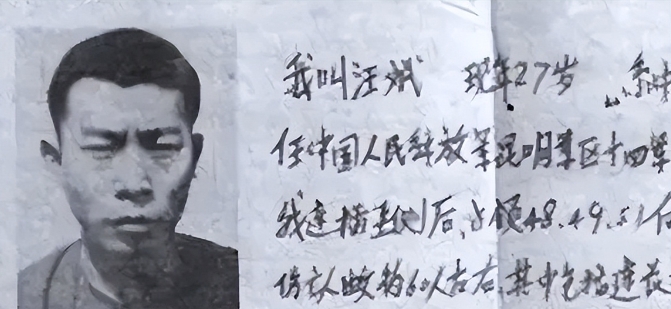 我叫汪斌 现年27岁
任中国人民解放军昆明军区十四军
我连插到后、占领48.49.51
俘 敌约60人左右、其中包括连